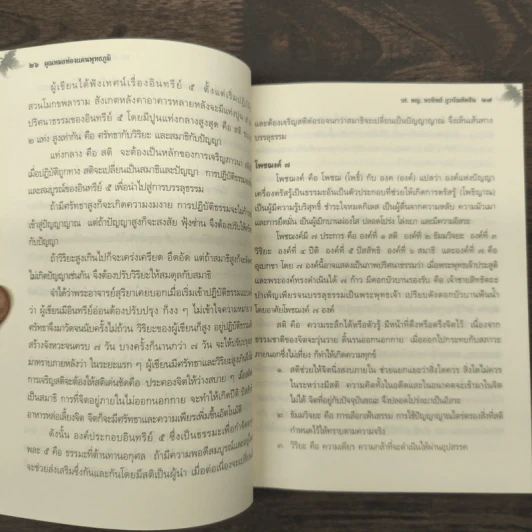 ๒๖ คุณหมอท่องแดนพุทธภูมิ
ผู้เขียนได้ฟังเทศน์เรื่องอินทรีย์ ๕ ตั้งแต่เริ่ม
สวนโมกขพลาราม สังเกตหลังคาอาคารหลายหลังจะมีแท่งปูน ๕
ปริศนาธรรมของอินทรีย์ ๕ โดยมีปูนแท่งกลางสูงสุด คือ สติ
๒ แท่ง สูงเท่ากัน คือ ศรัทธากับวิริยะ และสมาธิกับปัญญา
แท่งกลาง คือ สติ จะต้องเป็นหลักของการเจริญภาวนา
เมื่อปฏิบัติถูกทาง สติจะเปลี่ยนเป็นสมาธิและปัญญา การปฏิบัติธรรม
และสมบูรณ์ของอินทรีย์ ๕ เพื่อนำไปสู่การบรรลุธรรม
ถ้ามีศรัทธาสูงก็จะงมงาย การปฏิบัติธรรมจะไม่
เข้าสู่ปัญญาญาณ แต่ถ้าปัญญาสูงก็จะสงสัย ฟุ้งซ่าน จึงต้องปรับให้
กับปัญญา
ถ้าวิริยะสูงเกินไปก็จะเคร่งเครียด อึดอัด แต่ถ้าสมาธิสูงก็จะ
ไม่เกิดปัญญาเช่นกัน จึงต้องปรับวิริยะให้สมดุลกับสมาธิ
จำได้ว่าพระอาจารย์สุริยาเคยบอกเมื่อเริ่มเข้าปฏิบัติธรรม
ว่า ผู้เขียนมีอินทรีย์อ่อนต้องปรับปรุง ก็งง ๆ ไม่เข้าใจความหมาย
ศรัทธาจึงมาวัดจนนับครั้งไม่ถ้วน วิริยะของผู้เขียนก็สูง อยู่ปฏิบัติธรรม
สร้างจังหวะจนครบ ๗ วัน บางครั้งก็นานกว่า ๗ วัน จะให้
มาทราบภายหลังว่า ในระยะแรก ๆ ผู้เขียนมีศรัทธาและวิริยะสูงเกินไป
การเจริญสติจะต้องให้สติเด่นชัดคือ ประคองจิตให้ว่างสบาย ๆ เมื่อสติ
เป็นสมาธิ การที่จิตอยู่ภายในไม่ออกนอกกาย จะทำให้เกิดปีติ
อาหารหล่อเลี้ยงจิต จิตก็จะมีศรัทธาและความเพียรเพิ่มขึ้นอัตโนมัติ
ดังนั้น องค์ประกอบอินทรีย์ ๕ ซึ่งเป็นธรรมะเพื่อกำจัด
พละ ๕ คือ ธรรมะที่ต้านทานอกุศล ถ้ามีความพอดีสมบูรณ์และ
จะช่วยส่งเสริมซึ่งกันและกันโดยมีสติเป็นผู้นำ เมื่อต่อเนื่องจะเปลี่ยน
รศ. พญ. พรทิพย์ ๒๗
และต้องเจริญสติต่อรอจนกว่าสมาธิจะเปลี่ยนเป็นปัญญาญาณ จึงเดินเส้นทาง
บรรลุธรรม
โพชฌงค์ ๗
โพชฌงค์ คือ โพชฌ (โพธิ์) กับ องค (องค์) แปลว่า องค์แห่งปัญญา
เครื่องตรัสรู้เป็นธรรมะอันเป็นตัวประกอบที่ช่วยให้เกิดการตรัสรู้ (โพธิญาณ)
เป็นผู้มีความรู้บริสุทธิ์ ชำระใจหมดกิเลส เป็นผู้ตื่นจากความหลับ ความมัวเมา
และการยึดมั่น เป็นผู้เบิกบานผ่องใส ปลอดโปร่ง โล่งเบา และมีความอิสระ
โพชฌงค์มี ๗ ประการ คือ องค์ที่ ๑ สติ องค์ที่ ๒ ธัมมวิจยะ องค์ที่ ๓
วิริยะ องค์ที่ ๔ ปีติ องค์ที่ ๕ ปัสสัทธิ องค์ที่ ๖ สมาธิ และองค์ที่ ๗ คือ
อุเบกขา โดย ๗ องค์นี้อาจแสดงเป็นภาพปริศนาธรรมว่า เมื่อพระพุทธเจ้าประสูติ
และพระองค์ทรงดำเนินได้ ๗ ก้าว มีดอกบัวบานรองรับ คือ เจ้าชายสิทธัตถะ
บำเพ็ญเพียรจนบรรลุธรรมเป็นพระพุทธเจ้า เปรียบดังดอกบัวบานพ้นน้ำ
โดยอาศัยโพชฌงค์ ๗ องค์
สติ คือ ความระลึกได้หรือตัวรู้ มีหน้าที่ดึงหรือตรึงจิตไว้ เนื่องจาก
ธรรมชาติของจิตจะวุ่นวาย ดิ้นรนออกนอกกาย เมื่อออกไปกระทบกับสภาวะ
ภายนอกซึ่งไม่เที่ยง ก็ทำให้เกิดความทุกข์
๑. สติช่วยให้จิตนิ่งสงบภายใน ช่วยแยกแยะว่าสิ่งใดควร สิ่งใดไม่ควร
ในระหว่างมีสติ ความคิดทั้งในอดีตและในอนาคตจะเข้ามาในจิต
ไม่ได้ จิตที่อยู่กับปัจจุบันขณะ จึงปลอดโปร่งเบาเป็นอิสระ
๒. ธัมมวิจยะ คือ การเลือกเฟ้นธรรม การใช้ปัญญาใคร่ครองสิ่งที่สติ
กำหนดไว้ให้ทราบตามความจริง
๓. วิริยะ คือ ความเพียร ความกล้าที่จะดำเนินให้ผ่านอุปสรรค